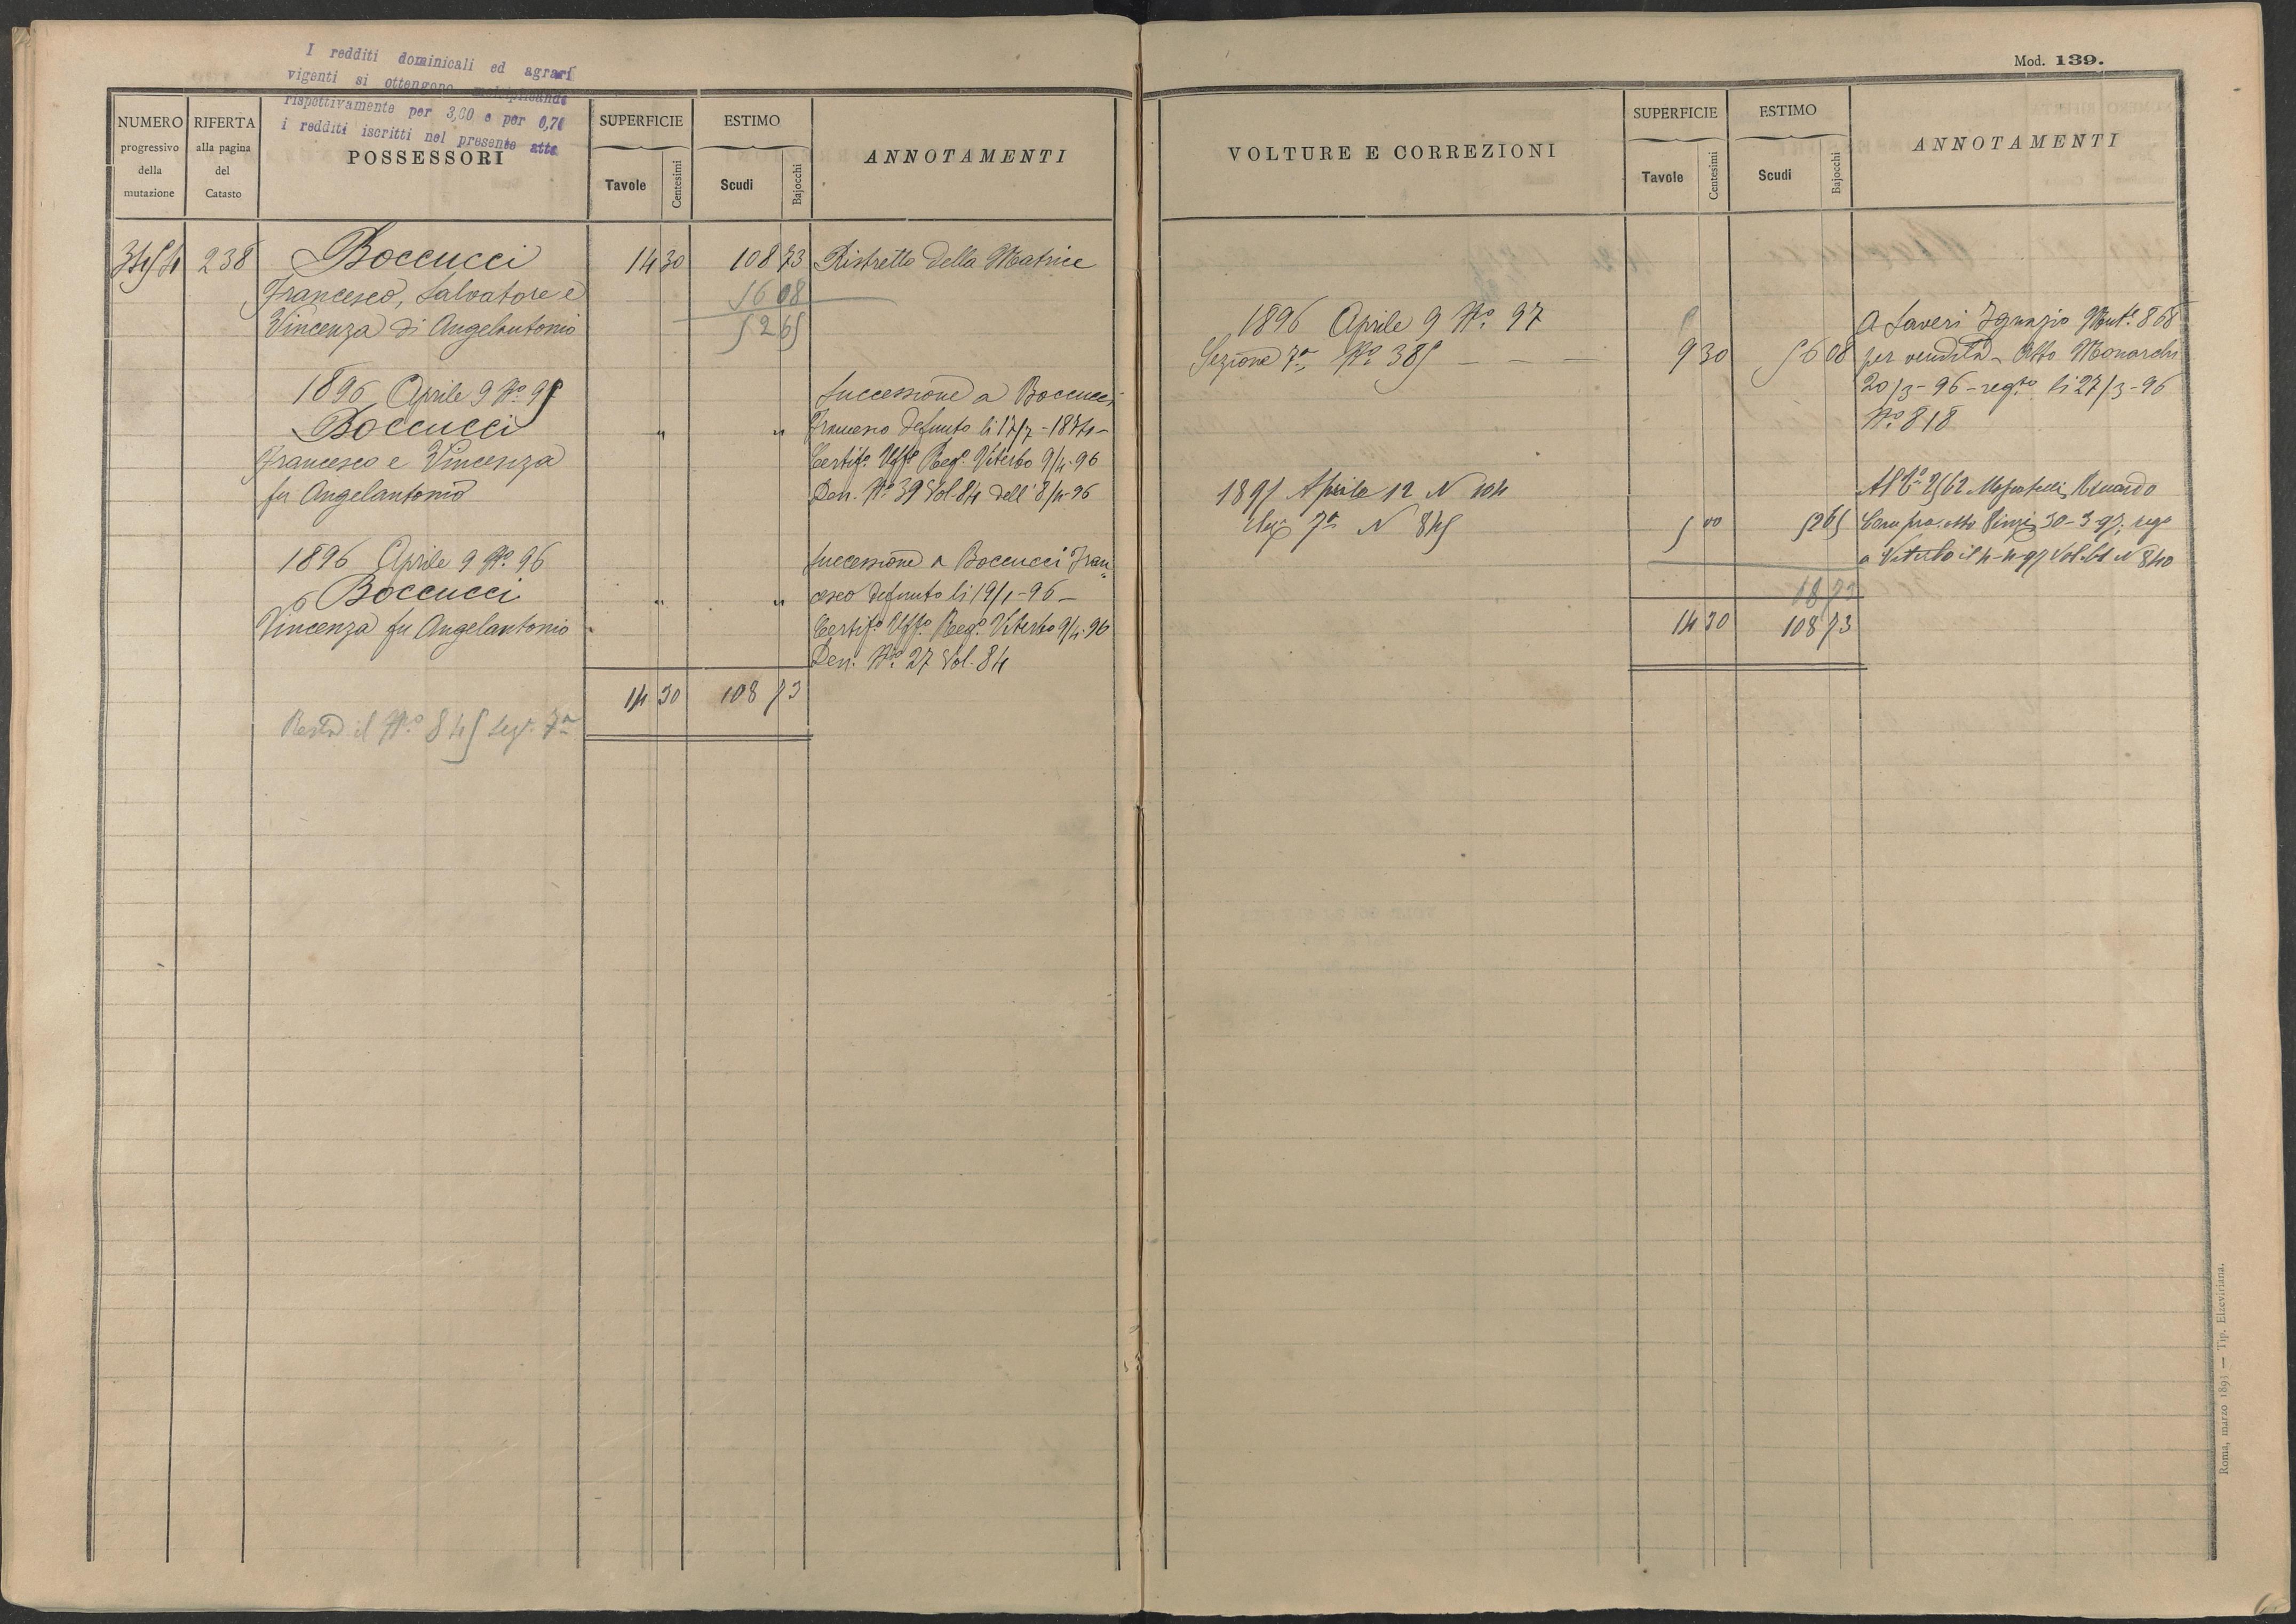 I redditi dominicali ed agrari
vigenti si ottengono moltiplicando
rispettivamente per 3,60 e per 0,70
i redditi iscritti nel presente atto
NUMERO progressivo della mutazione
RIFERTA alla pagina del Catasto
POSSESSORI
SUPERFICIE
Tavole Centesimi
ESTIMO
Scudi Bajocchi
ANNOTAMENTI
238 Boccucci 14 30 108 73 Ristretto della Matrice
Francesco, Salvatore e 56 08
Vincenza di Angelantonio 52 65
1896 Aprile 9 No. 95 Successione a Boccucci
Boccucci " " Francesco defunto li 17/7-1874-
Francesco e Vincenza Certifo. Uffo. Rego. Viterbo 9/4-96
fu Angelantonio Den. No. 39 Vol. 84 dell' 8/4-96
1896 Aprile 9 No. 96 Successione a Boccucci Fran
Boccucci " " cesco defunto li 19/1-96-
Vincenza fu Angelantonio Certifo. Uffo. Rego. Viterbo 9/4-96
Den. No. 27 Vol. 84
14 30 108 73
Resta il No. 845 Sez. 7a
Mod. 139.
VOLTURE E CORREZIONI
SUPERFICIE
Tavole Centesimi
ESTIMO
Scudi Bajocchi
ANNOTAMENTI
1896 Aprile 9 No. 97 A Saveri Ignazio Mut. 868
Sezione 7a No. 385 — — — 9 30 56 08 per vendita - Atto Monarchi
20/3-96-regto li 27/3-96
No. 818
1897 Aprile 12 N 104
Sez. 7a N 845 5 00 52 65
a Viterbo il 4-4-97 Vol. N 840
14 30 108 73
Roma, marzo 1895 — Tip. Elzeviriana.